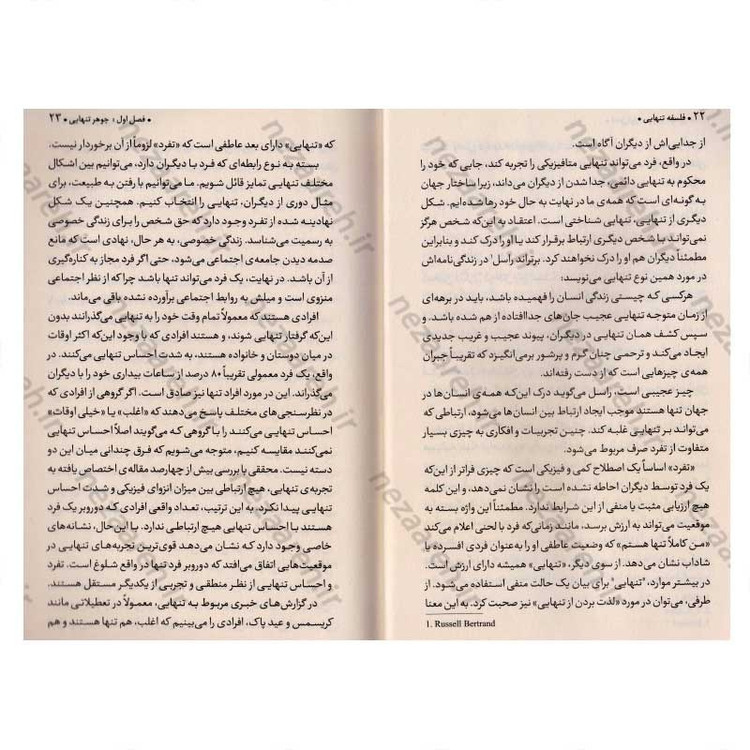 ۲۲ • فلسفه تنهایی •
از جدایی‌اش از دیگران آگاه است.
در واقع، فرد می‌تواند تنهایی متافیزیکی را تجربه کند، جایی که خود را
محکوم به تنهایی دائمی، جدا شدن از دیگران می‌داند، زیرا ساختار جهان
به گونه‌ای است که همه‌ی ما در نهایت به حال خود رها شده‌ایم. شکل
دیگری از تنهایی، تنهایی شناختی است. اعتقاد به این‌که شخص هرگز
نمی‌تواند با شخص دیگری ارتباط برقرار کند یا او را درک کند و بنابراین
مطمئناً دیگران هم او را درک نخواهند کرد. برتراند راسل۱ در زندگی‌نامه‌اش
در مورد همین نوع تنهایی می‌نویسد:
هرکسی که چیستی زندگی انسان را فهمیده باشد، باید در برهه‌ای
از زمان متوجه تنهایی عجیب جان‌های جداافتاده از هم شده باشد. و
سپس کشف همان تنهایی در دیگران، پیوند عجیب و غریب جدیدی
ایجاد می‌کند و ترحمی چنان گرم و پرشور برمی‌انگیزد که تقریباً جبران
همه‌ی چیزهایی است که از دست رفته‌اند.
چیز عجیبی است، راسل می‌گوید درک این‌که همه‌ی انسان‌ها در
جهان تنها هستند موجب ایجاد ارتباط بین انسان‌ها می‌شود، ارتباطی که
می‌تواند بر تنهایی غلبه کند. چنین تجربیات و افکاری به چیزی بسیار
متفاوت از تفرد صرف مربوط می‌شود.
«تفرد» اساساً یک اصطلاح کمی و فیزیکی است که چیزی فراتر از این‌که
یک فرد توسط دیگران احاطه نشده است را نشان نمی‌دهد، و این کلمه
هیچ ارزیابی مثبت یا منفی از این شرایط ندارد. مطمئناً این واژه بسته به
موقعیت می‌تواند به ارزش برسد، مانند زمانی‌که فرد با لحنی اعلام می‌کند
«من کاملاً تنها هستم» که وضعیت عاطفی او را به‌عنوان فردی افسرده یا
شاداب نشان می‌دهد. از سوی دیگر، «تنهایی» همیشه دارای ارزش است.
در بیشتر موارد، "تنهایی" برای بیان یک حالت منفی استفاده می‌شود. از
طرفی، می‌توان در مورد «لذت بردن از تنهایی» نیز صحبت کرد. به این معنا
1. Russell Bertrand
• فصل اول: جوهر تنهایی • ۲۳
که «تنهایی» دارای بعد عاطفی است که «تفرد» لزوماً از آن برخوردار نیست.
بسته به نوع رابطه‌ای که فرد با دیگران دارد، می‌توانیم بین اشکال
مختلف تنهایی تمایز قائل شویم. ما می‌توانیم با رفتن به طبیعت، برای
مثال دوری از دیگران، تنهایی را انتخاب کنیم. همچنین یک شکل
نهادینه شده از تفرد وجود دارد که حق شخص را برای زندگی خصوصی
به رسمیت می‌شناسد. زندگی خصوصی، به هر حال، نهادی است که مانع
صدمه دیدن جامعه‌ی اجتماعی می‌شود، حتی اگر فرد مجاز به کناره‌گیری
از آن باشد. در نهایت، یک فرد می‌تواند تنها باشد چرا که از نظر اجتماعی
منزوی است و میلش به روابط اجتماعی برآورده نشده باقی می‌ماند.
افرادی هستند که معمولاً تمام وقت خود را به تنهایی می‌گذرانند بدون
این‌که گرفتار تنهایی شوند، و هستند افرادی که با وجود این‌که اکثر اوقات
در میان دوستان و خانواده هستند، به شدت احساس تنهایی می‌کنند. در
واقع، یک فرد معمولی تقریباً ۸۰ درصد از ساعات بیداری خود را با دیگران
می‌گذراند. این در مورد افراد تنها نیز صادق است. اگر گروهی از افرادی که
در نظرسنجی‌های مختلف پاسخ می‌دهند که «اغلب» یا «خیلی اوقات»
احساس تنهایی می‌کنند را با گروهی که می‌گویند اصلاً احساس تنهایی
نمی‌کنند مقایسه کنیم، متوجه می‌شویم که فرق چندانی میان این دو
دسته نیست. محققی با بررسی بیش از چهارصد مقاله‌ی اختصاص یافته به
تجربه‌ی تنهایی، هیچ ارتباطی بین میزان انزوای فیزیکی و شدت احساس
تنهایی پیدا نکرد. به این ترتیب، تعداد واقعی افرادی که دوروبر یک فرد
هستند با احساس تنهایی هیچ ارتباطی ندارد. با این‌حال، نشانه‌های
خاصی وجود دارد که نشان می‌دهد قوی‌ترین تجربه‌های تنهایی در
موقعیت‌هایی اتفاق می‌افتد که دوروبر فرد تنها در واقع شلوغ است. تفرد
و احساس تنهایی از نظر منطقی و تجربی از یکدیگر مستقل هستند.
در گزارش‌های خبری مربوط به تنهایی، معمولاً در تعطیلاتی مانند
کریسمس و عید پاک، افرادی را می‌بینیم که اغلب، هم تنها هستند و هم
nezaareh.ir